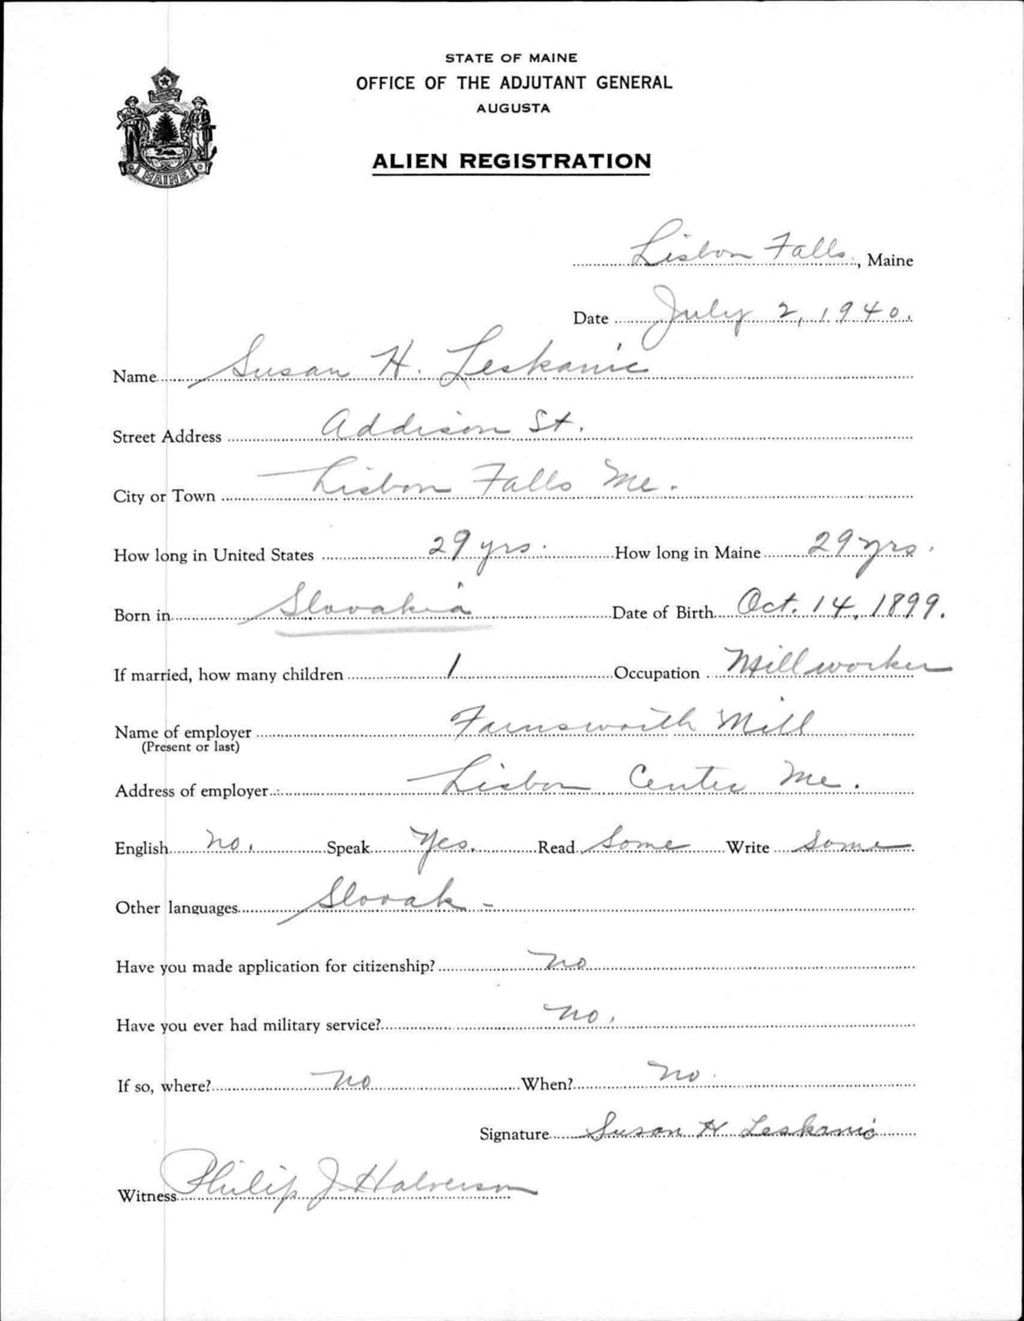 STATE OF MAINE
OFFICE OF THE ADJUTANT GENERAL
AUGUSTA
MAINE
ALIEN REGISTRATION
Lisbon Falls, Maine
Date July 2, 1940.
Name Susan H. Leskanic
Street Address Addison St.
City or Town Lisbon Falls Me.
How long in United States 29 yrs. How long in Maine 29 yrs.
Born in Slovakia Date of Birth Oct. 14, 1899.
If married, how many children 1 Occupation Millworker
Name of employer Farnsworth Mill
(Present or last)
Address of employer Lisbon Center Me.
English No. Speak Yes. Read Some Write Some
Other languages Slovak -
Have you made application for citizenship? No
Have you ever had military service? No.
If so, where? No When? No
Signature Susan H Leskanic
Witness Philip J Halverson